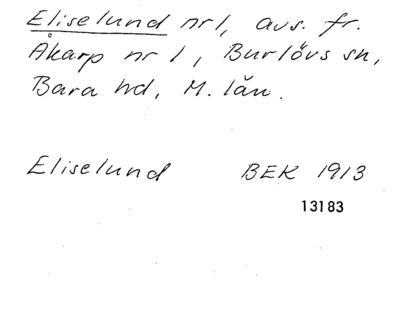 Eliselund nr 1, avs. fr.
Åkarp nr 1, Burlövs sn,
Bara hd, M. län.
Eliselund BEK 1913
13183